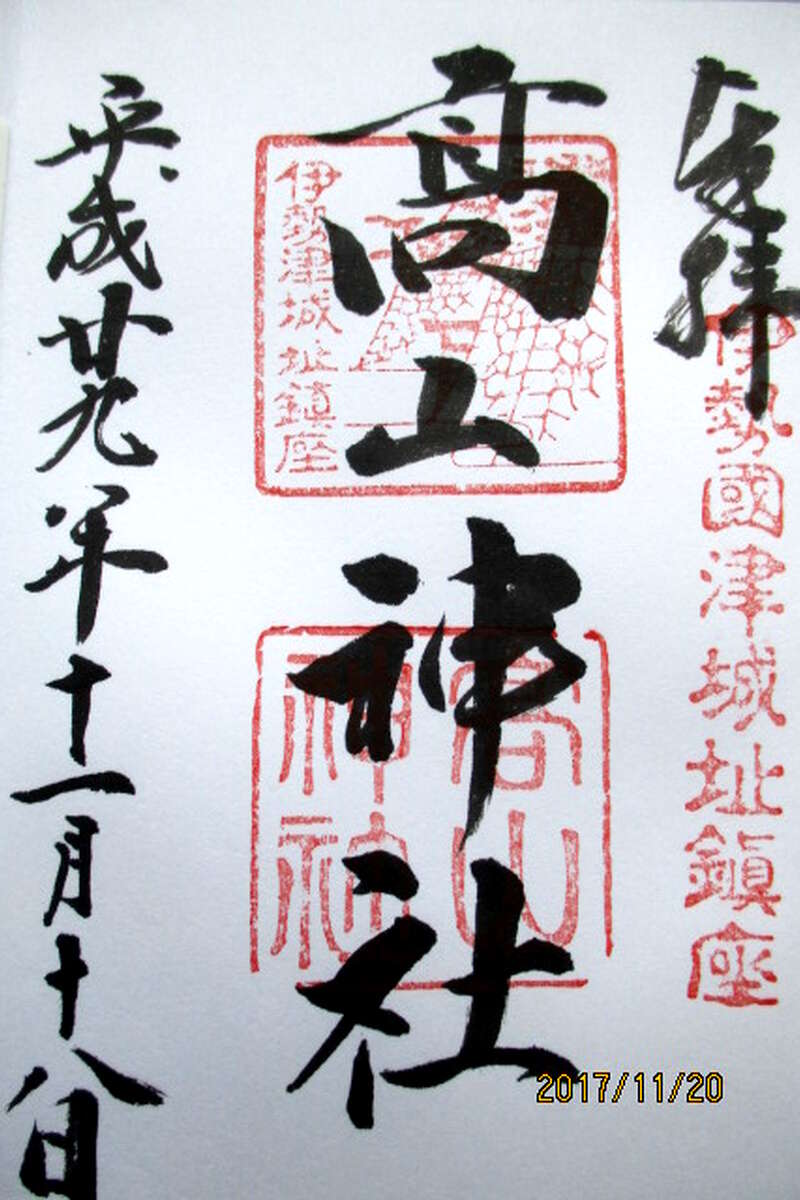 奉拝
伊勢國津城址鎮座
高山神社
伊勢津城址鎮座
高山
神社
平成廿九年十一月十八日
2017/11/20